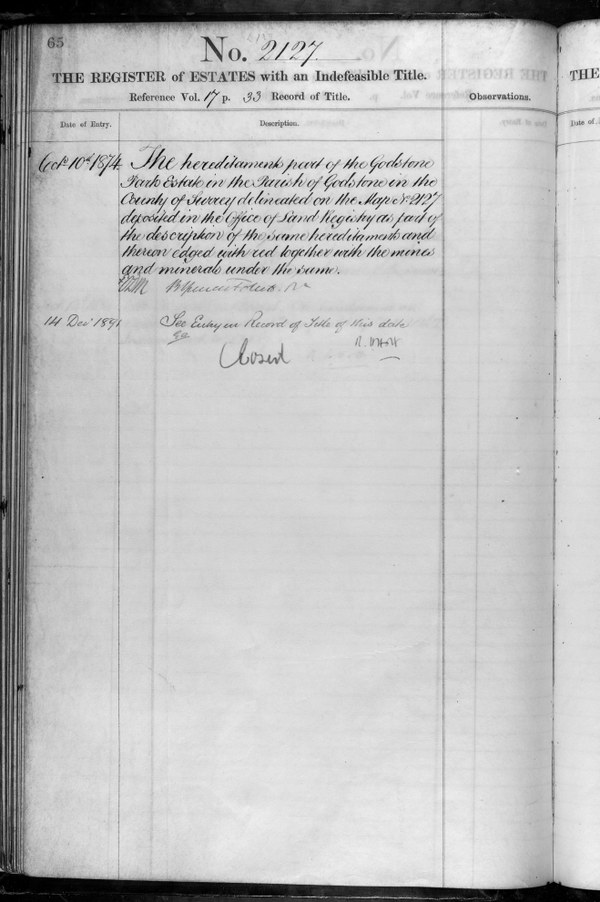 65
No. 2127
THE REGISTER of ESTATES with an Indefeasible Title.
Reference Vol. 17 p. 33 Record of Title.
Observations.
Date of Entry.
Description.
Octr 10th 1874
The hereditaments part of the Godstone
Park Estate in the Parish of Godstone in the
County of Surrey delineated on the Map No 2127
deposited in the Office of Land Registry as part of
the description of the same hereditaments and
thereon edged with red together with the mines
and minerals under the same.
14 Decr 1891
See Entry in Record of Title of this date
Closed
THE
Date of